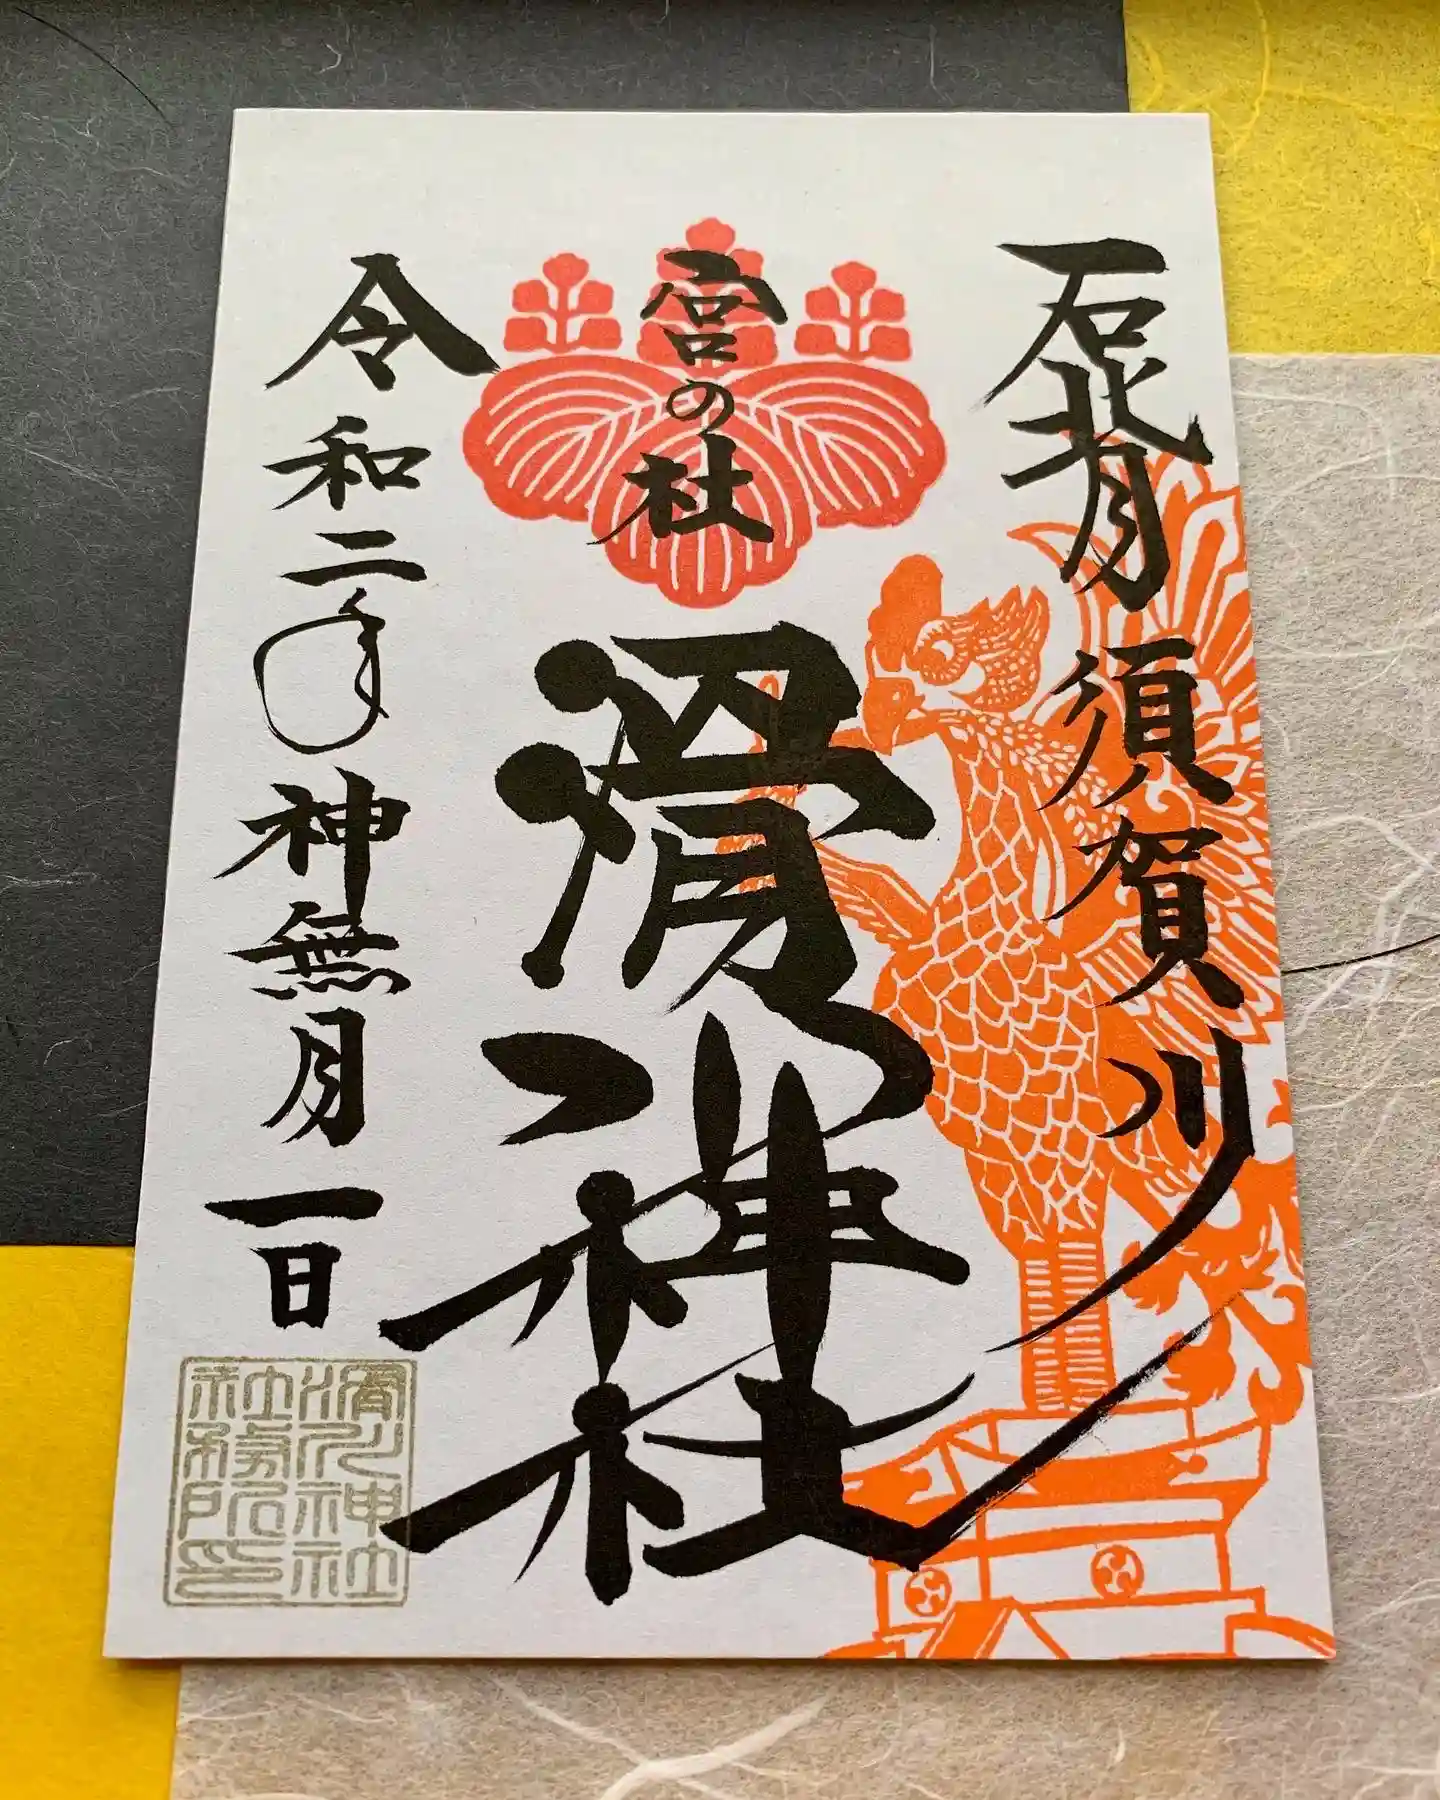 石背 須賀川
宮の杜
滑川神社
令和二年 神無月 一日
滑川神社
社務所印